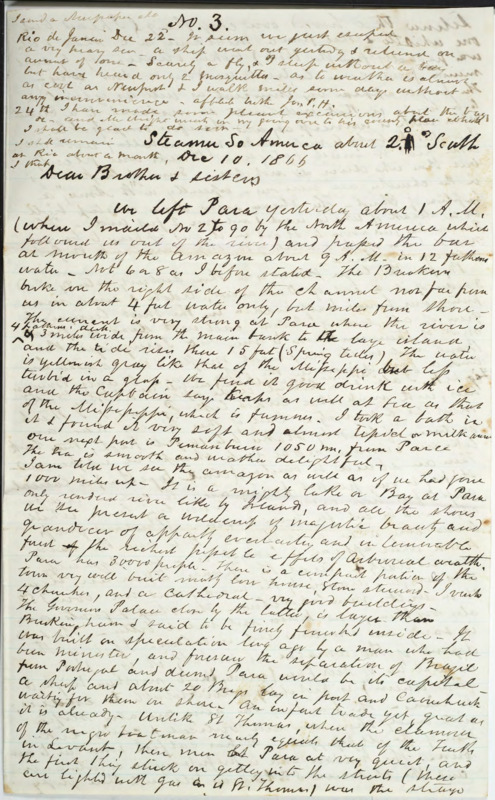 I send a Newspaper also
No. 3.
Rio de Janeiro Dec 22 - It seems we just escaped
a very heavy sea a ship went out yesterday & returned on
account of some - Scarcely a fly, & I sleep without a bar
but have heard only 2 mosquitoes - as to weather is almost
as cool as Newport & I walk miles some days without
any inconvenience - affect. with Jos. P. H.
24th I have made some pleasant excursions about the Bay
&c - and
I shall be glad to do so
I still remain Steamer So America about 2° South
at Rio about a month, Dec 10. 1866
I think
Dear Brother & sisters
We left Para yesterday about 1 A.M.
(where I mailed No 2 to go by the North America which
followed us out of the river) and passed the bar
at mouth of the amazon about 9 A.M. in 12 fathoms
water - Not 6 or 8 as I before stated - The Breakers
broke on the right side of the channel not far from
us in about 4 feet water only, but miles from shore -
The current is very strong at Para where the river is
4 fathoms deep
& 3 miles wide from the main bank to the large island
and the tide rises there 15 feet (Spring tides). The water
is yellowish gray like that of the Missippi but less
turbid in a glass - We find it good drink with ice
and the Captain says keeps as well at sea as that
of the Missippi, which is famous - I took a bath in
it & found it very soft and almost tepid or milk warm
our next port is Pernambuco 1050 ms. from Para
The sea is smooth and weather delightful -
I am told we see the amazon as well as if we had gone
1000 miles up - It is a mighty lake or Bay at Para
only rendered river like by Islands, and all the shores
we see present a wilderness of majestic beauty and
grandeur of apparently everlasting and innumerable
forest of the richest possible effects of Arboreal wealth.
Para has 30000 people. There is a compact portion of the
town very well built mostly low houses, & stone stuccoed. I visited
4 churches, and a Cathedral - very good buildings -
The Governors Palace close by the latter is larger than
Buckingham & said to be finely finished inside - It
was built on speculation long ago by a man who had
been minister, and foresaw the separation of Brazil
from Portugal and deemed Para would be its capital -
a ship and about 20 Brigs lay in port and Caoutchouc
waiting for them on shore. An important trade yet, great as
it is already - Unlike St Thomas, where the clamour
of the negro boatmen nearly equals that of the Turks
in Levant, these men at Para at very quiet, and
the first thing struck on getting into the streets (these
are lighted with gas as is St. Thomas) was the strange